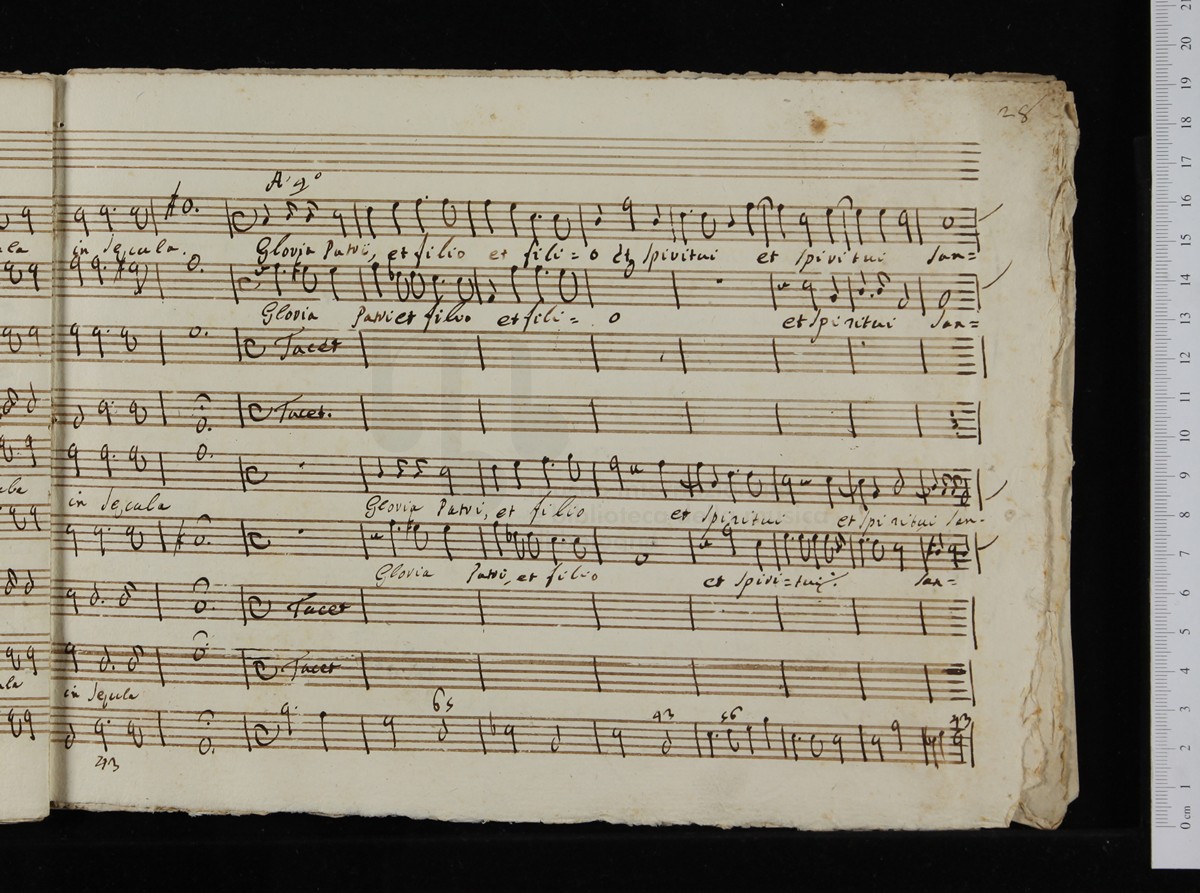 28
A. 2°
la in secula. Gloria Patri, et filio et fili = o et spiritui et spiritui San=
Gloria Patri et filio et fili = o et Spiritui San=
Tacet
Tacet.
in secula Gloria Patri, et filio et Spiritui et Spiritui San-
Gloria Patri, et filio et Spiri=tui San=
Tacet
Tacet
la in secula
65
43 56 43
43
21
20
19
18
17
16
15
14
13
12
11
10
9
8
7
6
5
4
3
2
1
0 cm